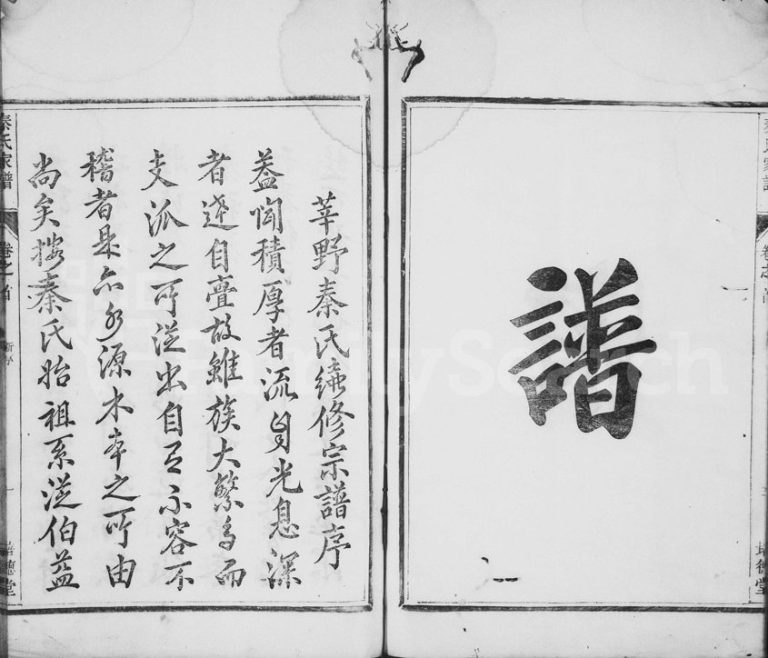 秦氏家譜
卷之首
培德堂
譜
莘野秦氏續修宗譜序
葢聞積厚者流自光息深
者達自亹故雖族大繁多而
支派之所從出自有不容不
稽者是亦水源木本之所由
尚矣按秦氏始祖系從伯益
秦氏家譜
卷之首
一
培德堂
FamilySearch